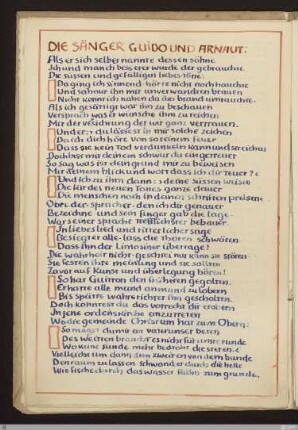 DIE SÄNGER GUIDO UND ARNAUT:
Als er sich selber nannte dessen söhne
Ich und manch besserer wurde der gebrauchte
Die süssen und gefälligen liebestöne:
Da ging ich sinnend· hörte nicht noch hauchte
Und sah nur ihn mit unverwandten brauen
Nicht konnt ich nahen da das brand umrauchte·
Als ich gesättigt war ihn zu beschauen
Versprach was er wünsche ihm zu reichen
Mit der versichrung der wir ganz vertrauen·
Und er: du lässest in mir solche zeichen
Durch dich höre von so reinem feuer
Dass sie kein Tod verdunkeln kann und streichen
Doch bist du meinem schwur ein getreuer
So sag was ist dein grund mir zu beweisen
Mit deinem blick und wort dass ich dir teuer?
Und ich zu ihm dann: deine süssen weisen
Die für des neuen Tones ganze dauer
Die menschen noch in deinen schriften preisen·
O bruder sprach er· den ich dir genauer
Bezeichne und sein finger gab die lage·
War seiner sprache trefflichster bebauer
In liebeslied und rittterlicher sage
Besiegt er alle· lass die thoren schwören
Dass ihn der Limousiner überrage!
Die wahrheit nicht· gerücht nur kann sie stören
Sie festen ihre meinung und sie sollten
Zuvor auf Kunst und überlegung hören!
So hat Guitton den früheren gegolten
Er hatte alle mund an mund zu lobern
Bis spät're wahre richter ihn gescholten·
Doch konntest du das vorrecht dir erobern
In jene ordenskirche anzutreten
Wo die gemeinde Christum hat zum Obern:
So magst du mir ein vaterunser beten
Des weitren braucht es nicht für unser runde
Wo keine sünde mehr bedroht die steten·
Vielleicht um dann dem zweiten von dem bunde
Den raum zu lassen schwand er durch die helle
Wie fische durch das wasser flühn zum grunde·